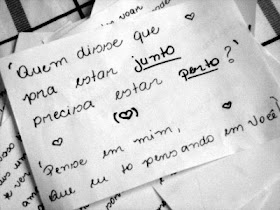 'Quem disse que
pra estar junto
precisa estar perto?'
'Pense em mim,
que eu tô pensando em você!